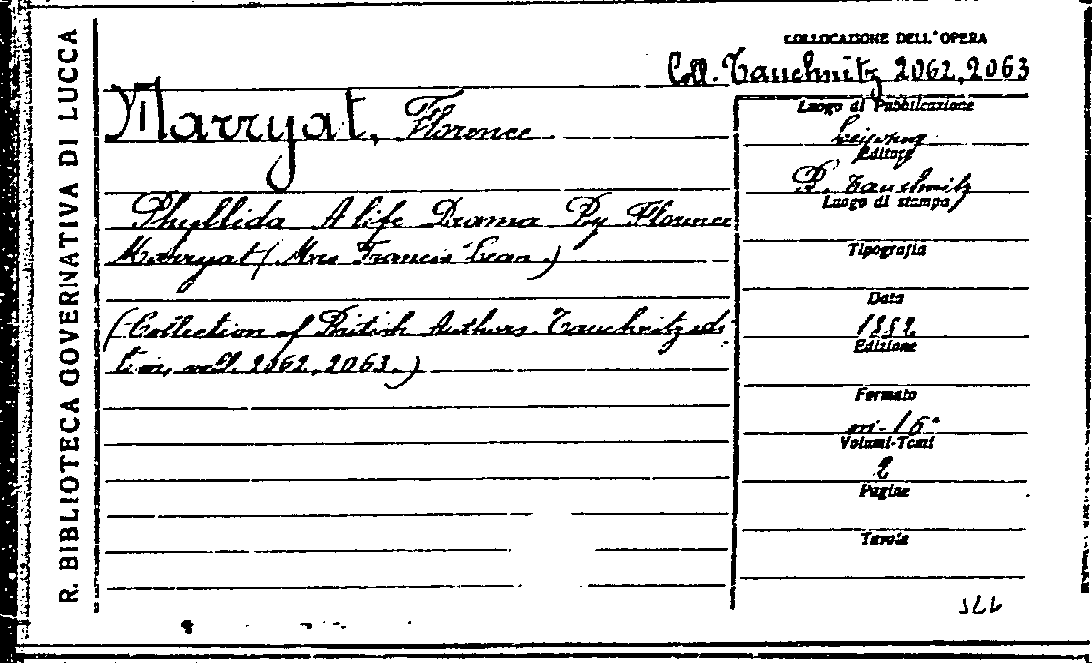 R. BIBLIOTECA GOVERNATIVA DI LUCCA
COLLOCAZIONE DELL'OPERA
Coll. Tauchnitz 2062, 2063
Marryat, Florence
Phyllida A life Drama By Florence
Marryat (Mrs Francis Lean.)
(Collection of British Authors. Tauchnitz edi-
tion, voll. 2062, 2063.)
Luogo di Pubblicazione
Leipzig
Editore
B. Tauchnitz
Luogo di stampa
Tipografia
Data
1882
Edizione
Formato
in-16°
Volumi-Tomi
2
Pagine
Tavole